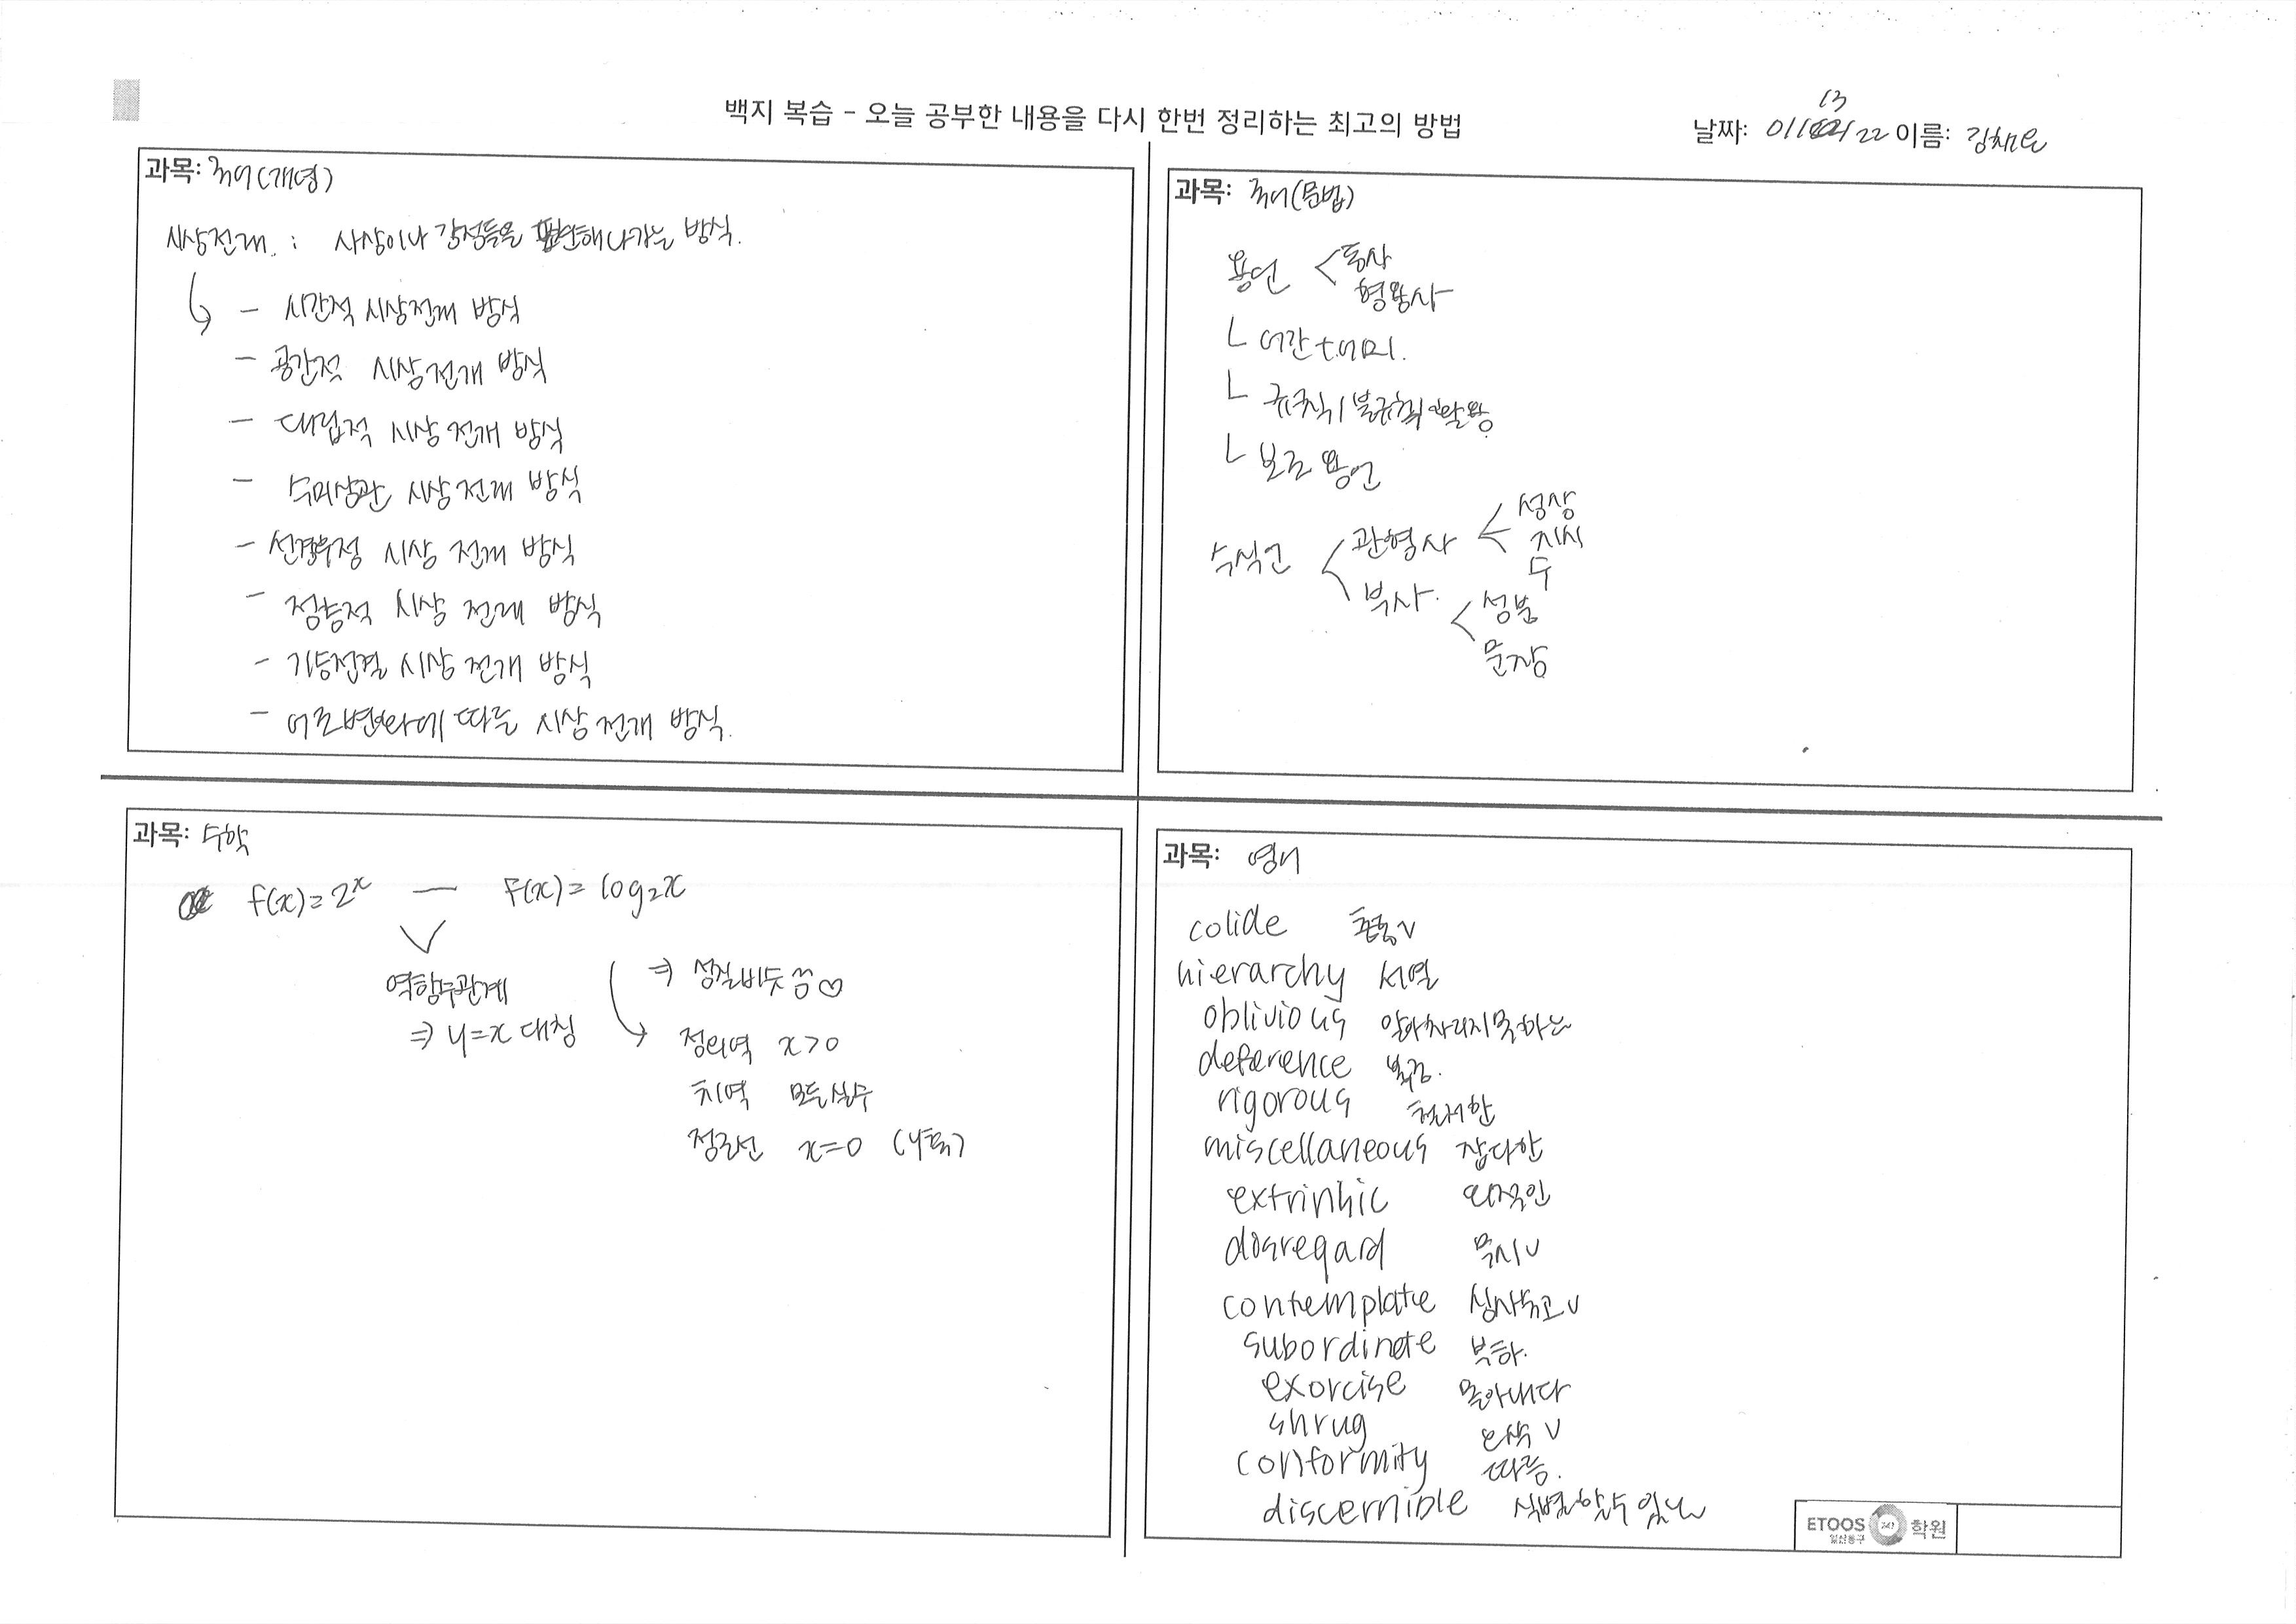 백지 복습 - 오늘 공부한 내용을 다시 한번 정리하는 최고의 방법
13
날짜: 22 이름: 김채은
과목: 국어(개념)
시상전개 : 사상이나 감정들을 표현해나가는 방식.
- 시간적 시상전개 방식
- 공간적 시상전개 방식
- 대립적 시상 전개 방식
- 수미상관 시상 전개 방식
- 선경후정 시상 전개 방식
- 점층적 시상 전개 방식
- 기승전결 시상 전개 방식
- 어조변화에 따른 시상 전개 방식.
과목: 국어(문법)
용언 < 동사
형용사
ㄴ 어간+어미.
ㄴ 규칙/불규칙 활용
ㄴ 보조 용언
수식언 < 관형사 < 성상
지시
수
부사. < 성분
문장
과목: 수학
f(x)=2^x — f(x)=log₂x
역함수관계
⇒ y=x 대칭
⇒ 성질비슷함♡
정의역 x>0
치역 모든실수
점근선 x=0 (y축)
과목: 영어
colide 충돌v
hierarchy 서열
oblivious 알아차리지못하는
deference 복종.
rigorous 철저한
miscellaneous 잡다한
extrinhic 외적인
disregard 묵시v
contemplate 심사숙고v
subordinate 부하.
exorcise 몰아내다
shrug 으쓱 v
conformity 따름.
discernible 식별할수 있는
ETOOS 247 학원
일산동구